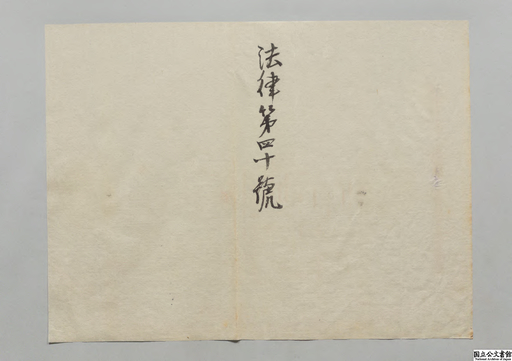 法律第四十號
国立公文書館
National Archives of Japan